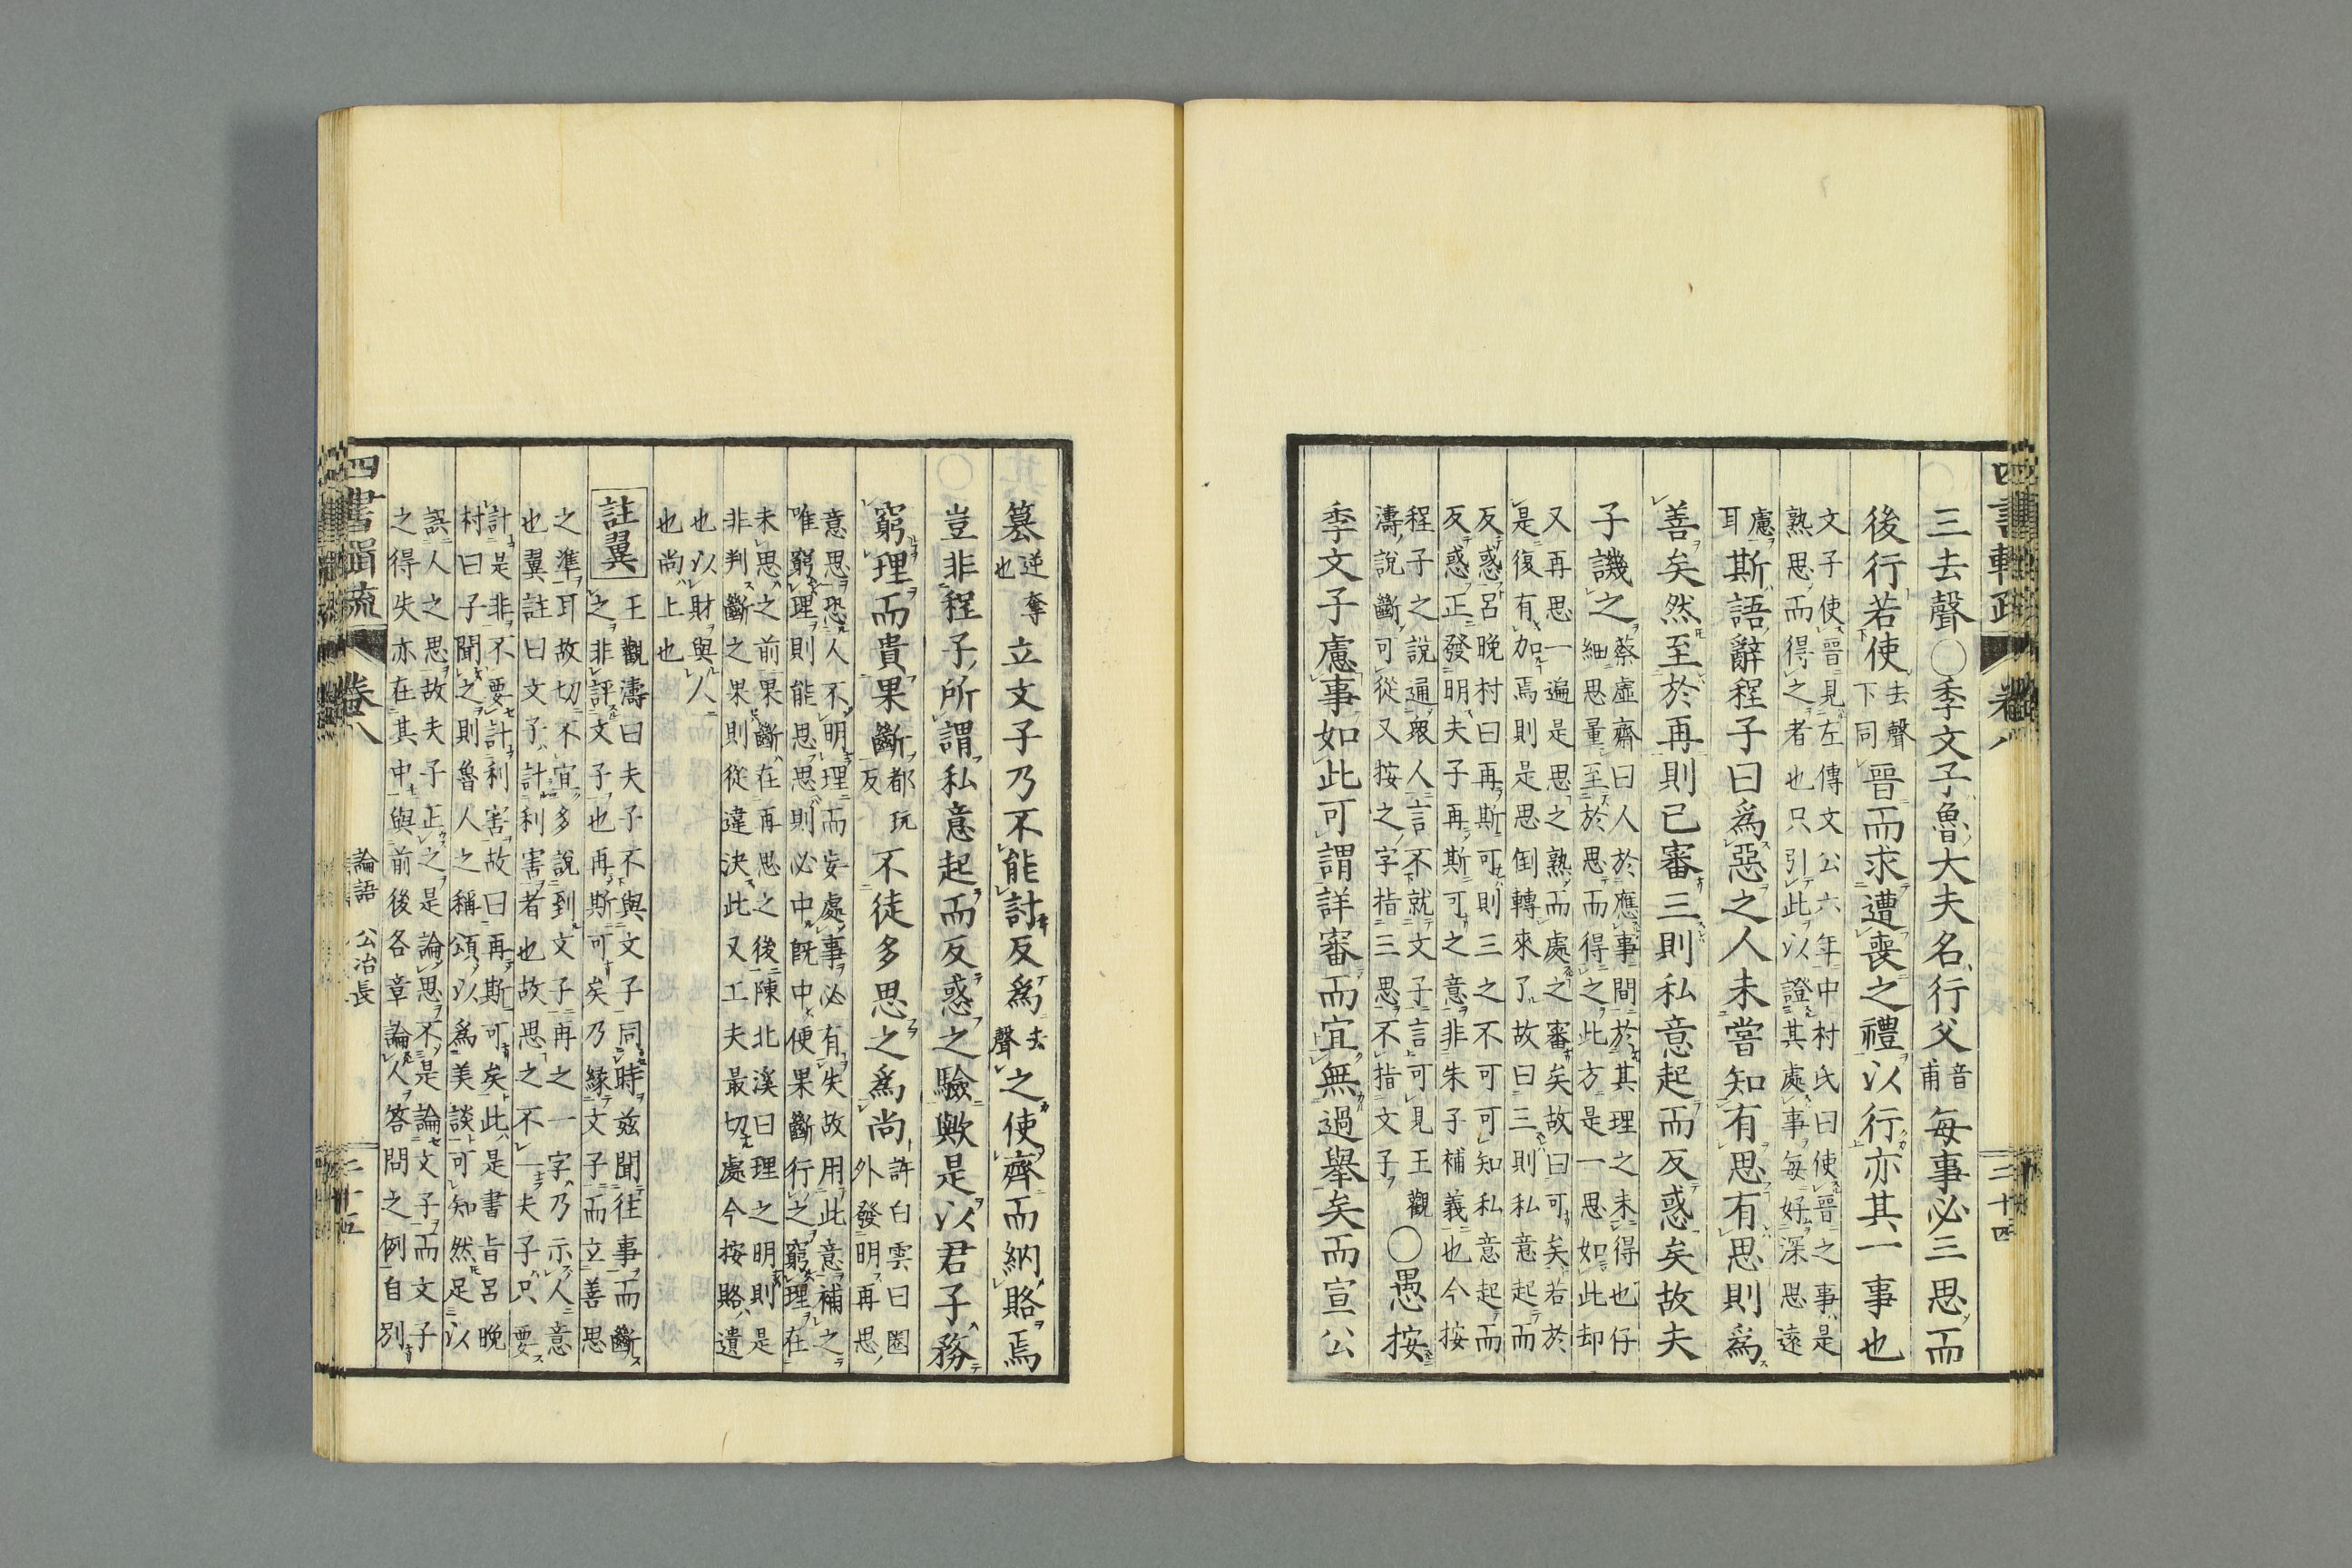 三去聲○季文子魯大夫名行父音甫每事必三思而
後行若使去聲下同晉而求遭喪之禮以行亦其一事也
文子使晉見左傳文公六年中村氏曰使晉之事是
熟思而得之者也只引此以證其處事每好深思遠
慮耳
斯語辭程子曰爲惡之人未嘗知有思有思則爲
善矣然至於再則已審三則私意起而反惑矣故夫
子譏之
蔡虛齋曰人於應事間於其理之未得也仔
細思量至於思而得之此方是一思如此却
又再思一遍是思之熟而處之審矣故曰可矣若於
是復有加焉則是思倒轉來了故曰三則私意起而
反惑呂晚村曰再斯可則三之不可可知私意起而
反惑正發明夫子再斯可之意非朱子補義也今按
程子之說通衆人言不就文子言可見王觀
濤說斷可從又按之字指三思不指文子
○愚按
季文子慮事如此可謂詳審而宜無過舉矣而宣公
四書輯疏 卷八 三十四
篡逆奪也立文子乃不能討反爲去聲之使齊而納賂焉
豈非程子所謂私意起而反惑之驗歟是以君子務
窮理而貴果斷都玩反不徒多思之爲尚
許白雲曰圈
外發明再思
意思恐人不明理而妄處事必有失故用此意補之
唯窮理則能思思則必中既中便果斷行之窮理在
未思之前果斷在再思之後陳北溪曰理之明則是
非判斷之果則從違決此又工夫最切處今按賂遺
也以財與人
也尚上也
註翼
王觀濤曰夫子不與文子同時玆聞往事而斷
之非評文子也再斯可矣乃緣文子而立善思
之準耳故切不宜多說到文子再之一字乃示人意
也翼註曰文子計利害者也故思之不一夫子只要
計是非不要計利害故曰再斯可矣此是書旨呂晚
村曰子聞之則魯人之稱頌以爲美談可知然足以
誤人之思故夫子正之是論思不是論文子而文子
之得失亦在其中與前後各章論人答問之例自別
四書輯疏 卷八 論語 公冶長 三十五